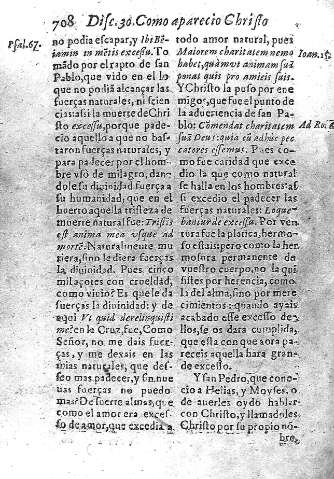 708 Disc. 30. Como aparecio Christo
Psal. 67.
no podia escapar, y Ibi Ben-
iamin in mētis excessu. To-
mādo por el rapto de san
Pablo, que vido en el lo
que no podia alcançar las
fuerças naturales, ni scien
cias: assi la muerte de Chri
sto excessu, porque pade-
cio aquello a que no bas-
taron fuerças naturales, y
para padecer por el hom-
bre vsò de milagro, dan-
dole su diuinidad fuerça a
su humanidad, que en el
huerto aquella tristeza de
muerte natural fue: Tristis
est anima mea vsque ad
mortē. Naturalmente mu
riera, sino le diera fuerças
la diuinidad. Pues cinco
mil açotes con crueldad,
como viuio? Es que le da
fuerças la diuinidad: y de
aqui Vt quid dereliquisti
me? en le Cruz, fue, Como
Señor, no me dais fuer-
ças, y me dexais en las
mias naturales, que des-
seo mas padecer, y sin nue
uas fuerças no puedo
mas? De suerte almas, que
como el amor era exces-
so de amor, que excedia a
todo amor natural, pues
Maiorem charitatem nemo
habet, quàm vt animam suā
ponas quis pro amicis suis.
Y Christo la puso por ene
migos, que fue el punto de
la aduertencia de san Pa-
blo: Cōmendat charitatem
suā Deus: quia cū adhuc pec
catores essemus. Pues co-
mo fue caridad que exce
dio la que como natural
se halla en los hombres: as
si excedio el padecer las
fuerças naturales: Loque-
bantur de excessu. Por ven
tura fue la platica, hermo-
so estais: pero como la her
mosura permanente de
vuestro cuerpo, no la qui
sistes por herencia, como
la del alma, sino por mere
cimientos: quando ayais
acabado esse excesso de-
llos, se os dara cumplida,
que esta con que aora pa-
receis aquella hara gran-
de excesso.
Y san Pedro, que cono-
cio a Helias, y Moyses, o
de auerles oydo hablar
con Christo, y llamadoles
Christo por su propio nō-
bre,
Ioan. 15.